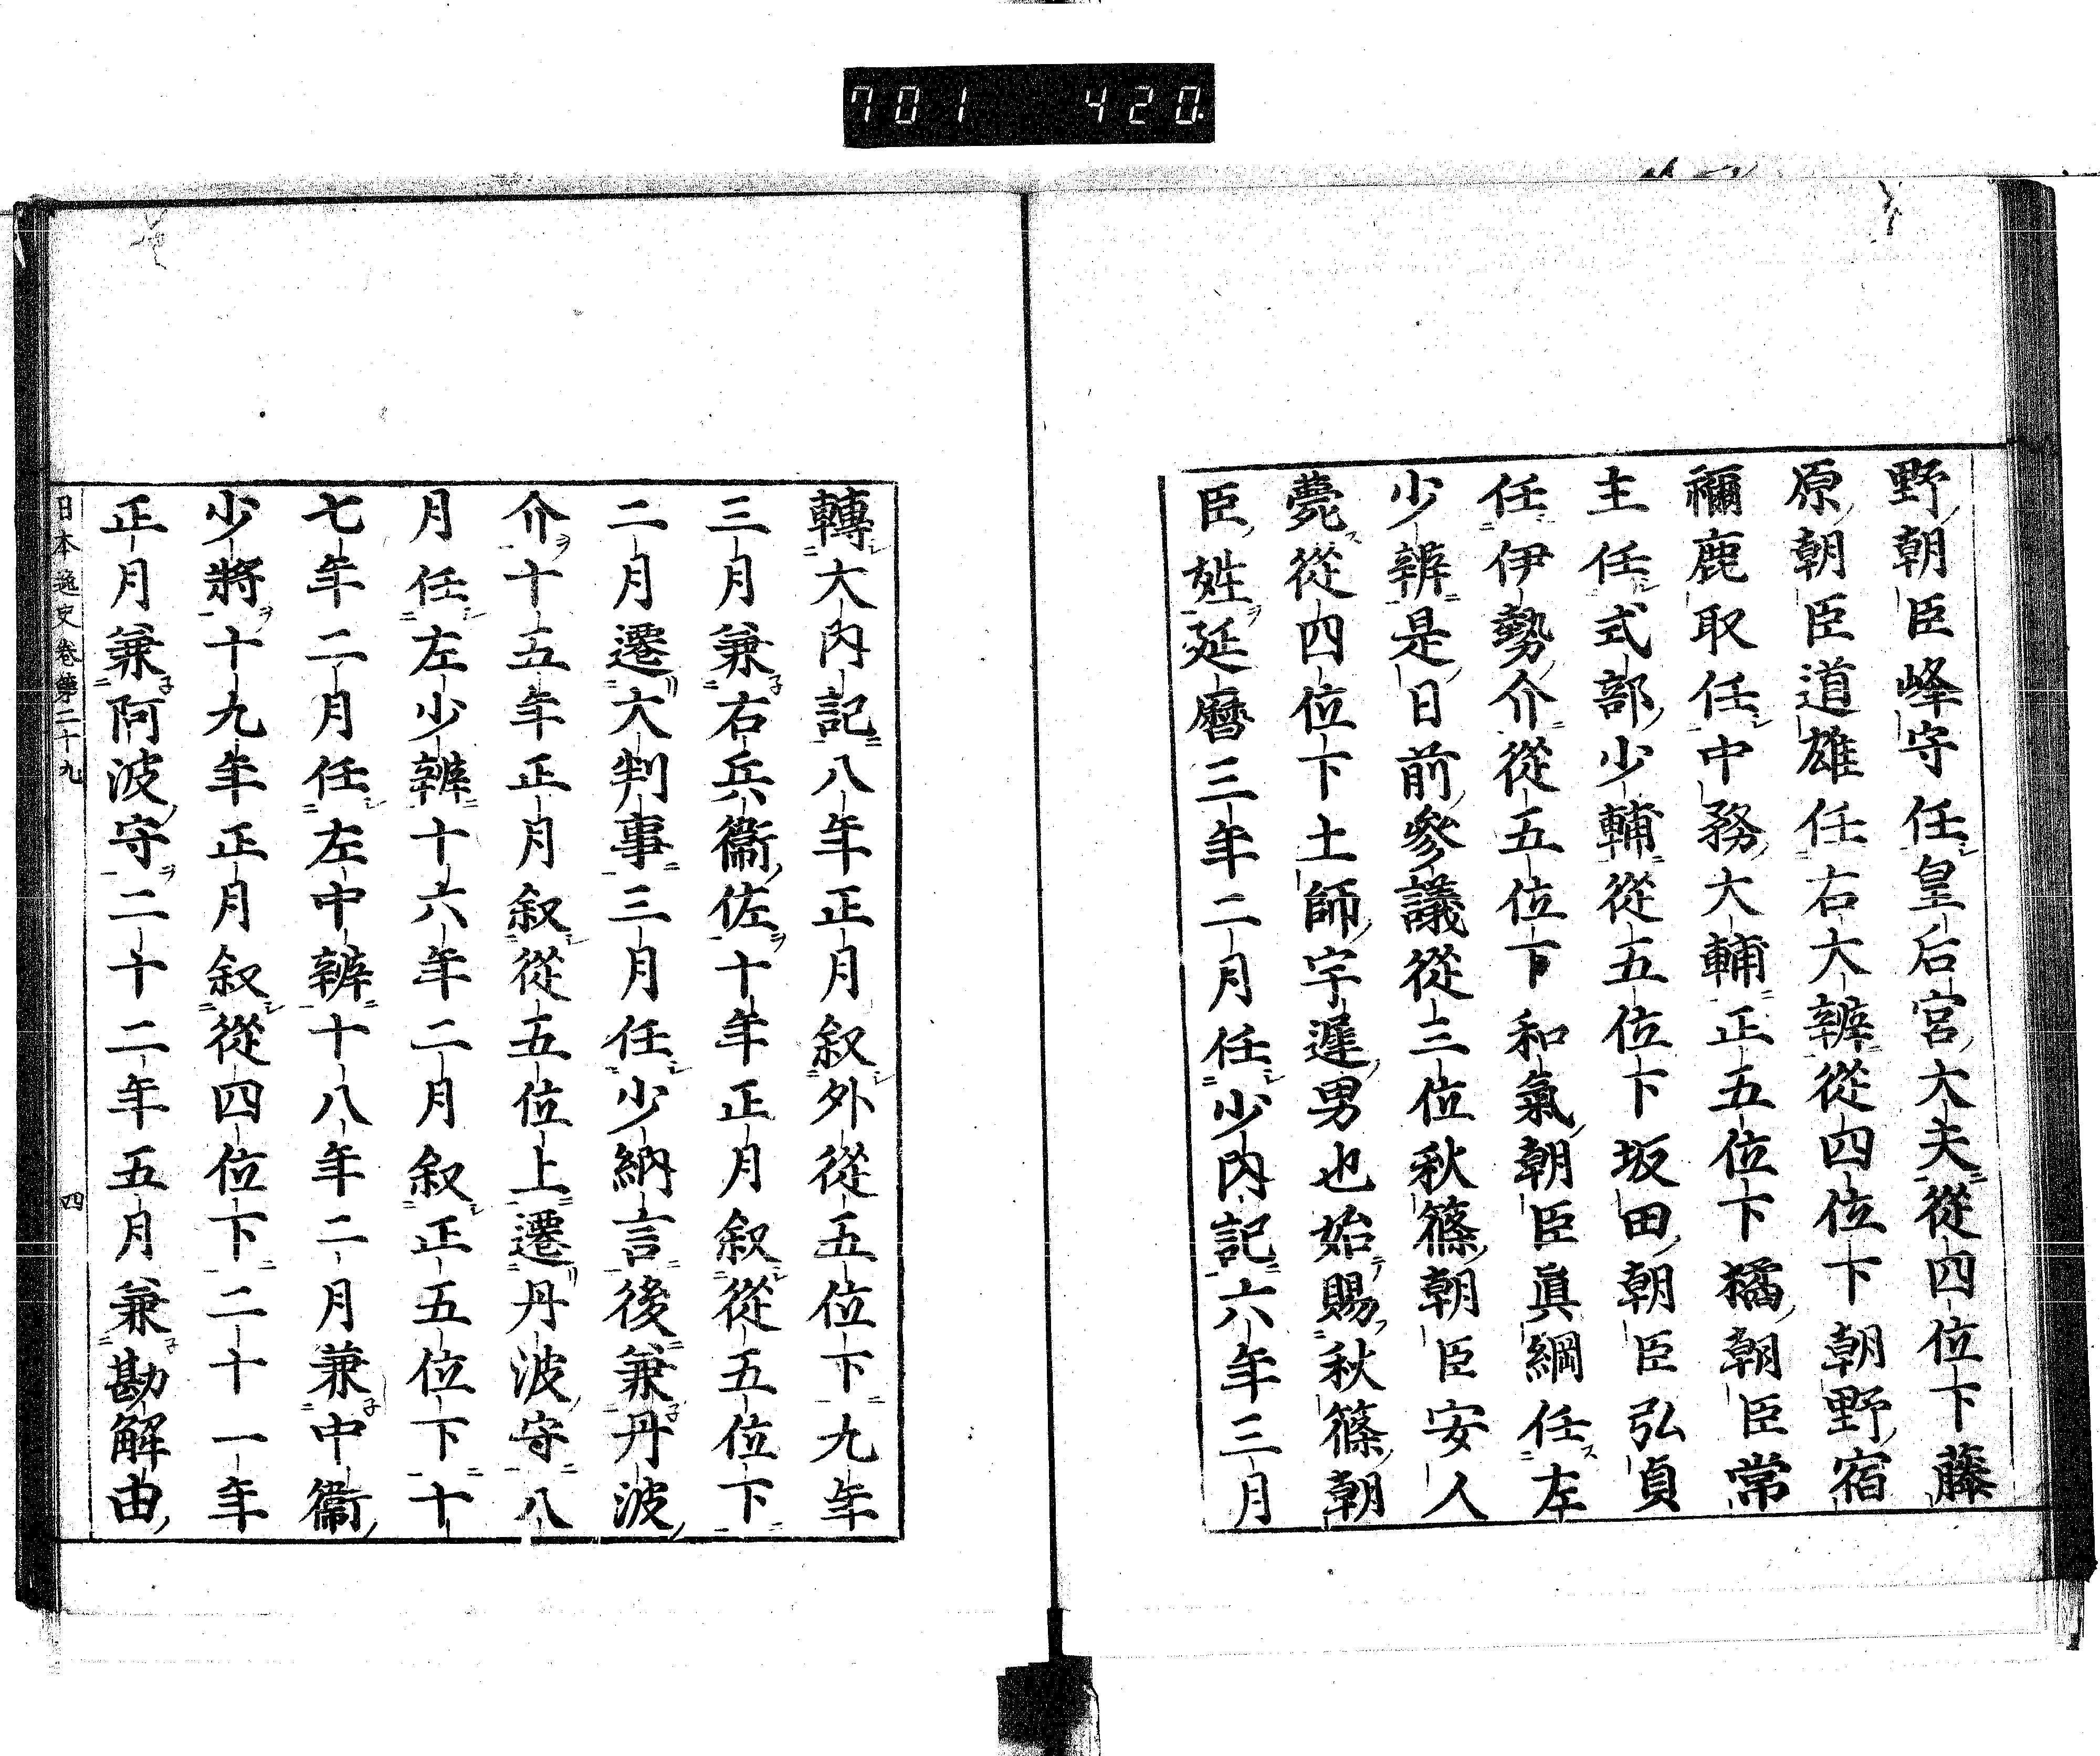 701 420
野朝臣峰守任皇后宮大夫從四位下藤
原朝臣道雄任右大辨從四位下朝野宿
禰鹿取任中務大輔正五位下橘朝臣常
主任式部少輔從五位下坂田朝臣弘貞
任伊勢介從五位下和氣朝臣眞綱任左
少辨是日前參議從三位秋篠朝臣安人
薨從四位下土師宇遲男也始賜秋篠朝
臣姓延曆三年二月任少內記六年三月
轉大內記八年正月叙外從五位下九年
三月兼右兵衞佐十年正月叙從五位下
二月遷大判事三月任少納言後兼丹波
介十五年正月叙從五位上遷丹波守八
月任左少辨十六年二月叙正五位下十
七年二月任左中辨十八年二月兼中衞
少將十九年正月叙從四位下二十一年
正月兼阿波守二十二年五月兼勘解由
日本逸史卷第二十九 四